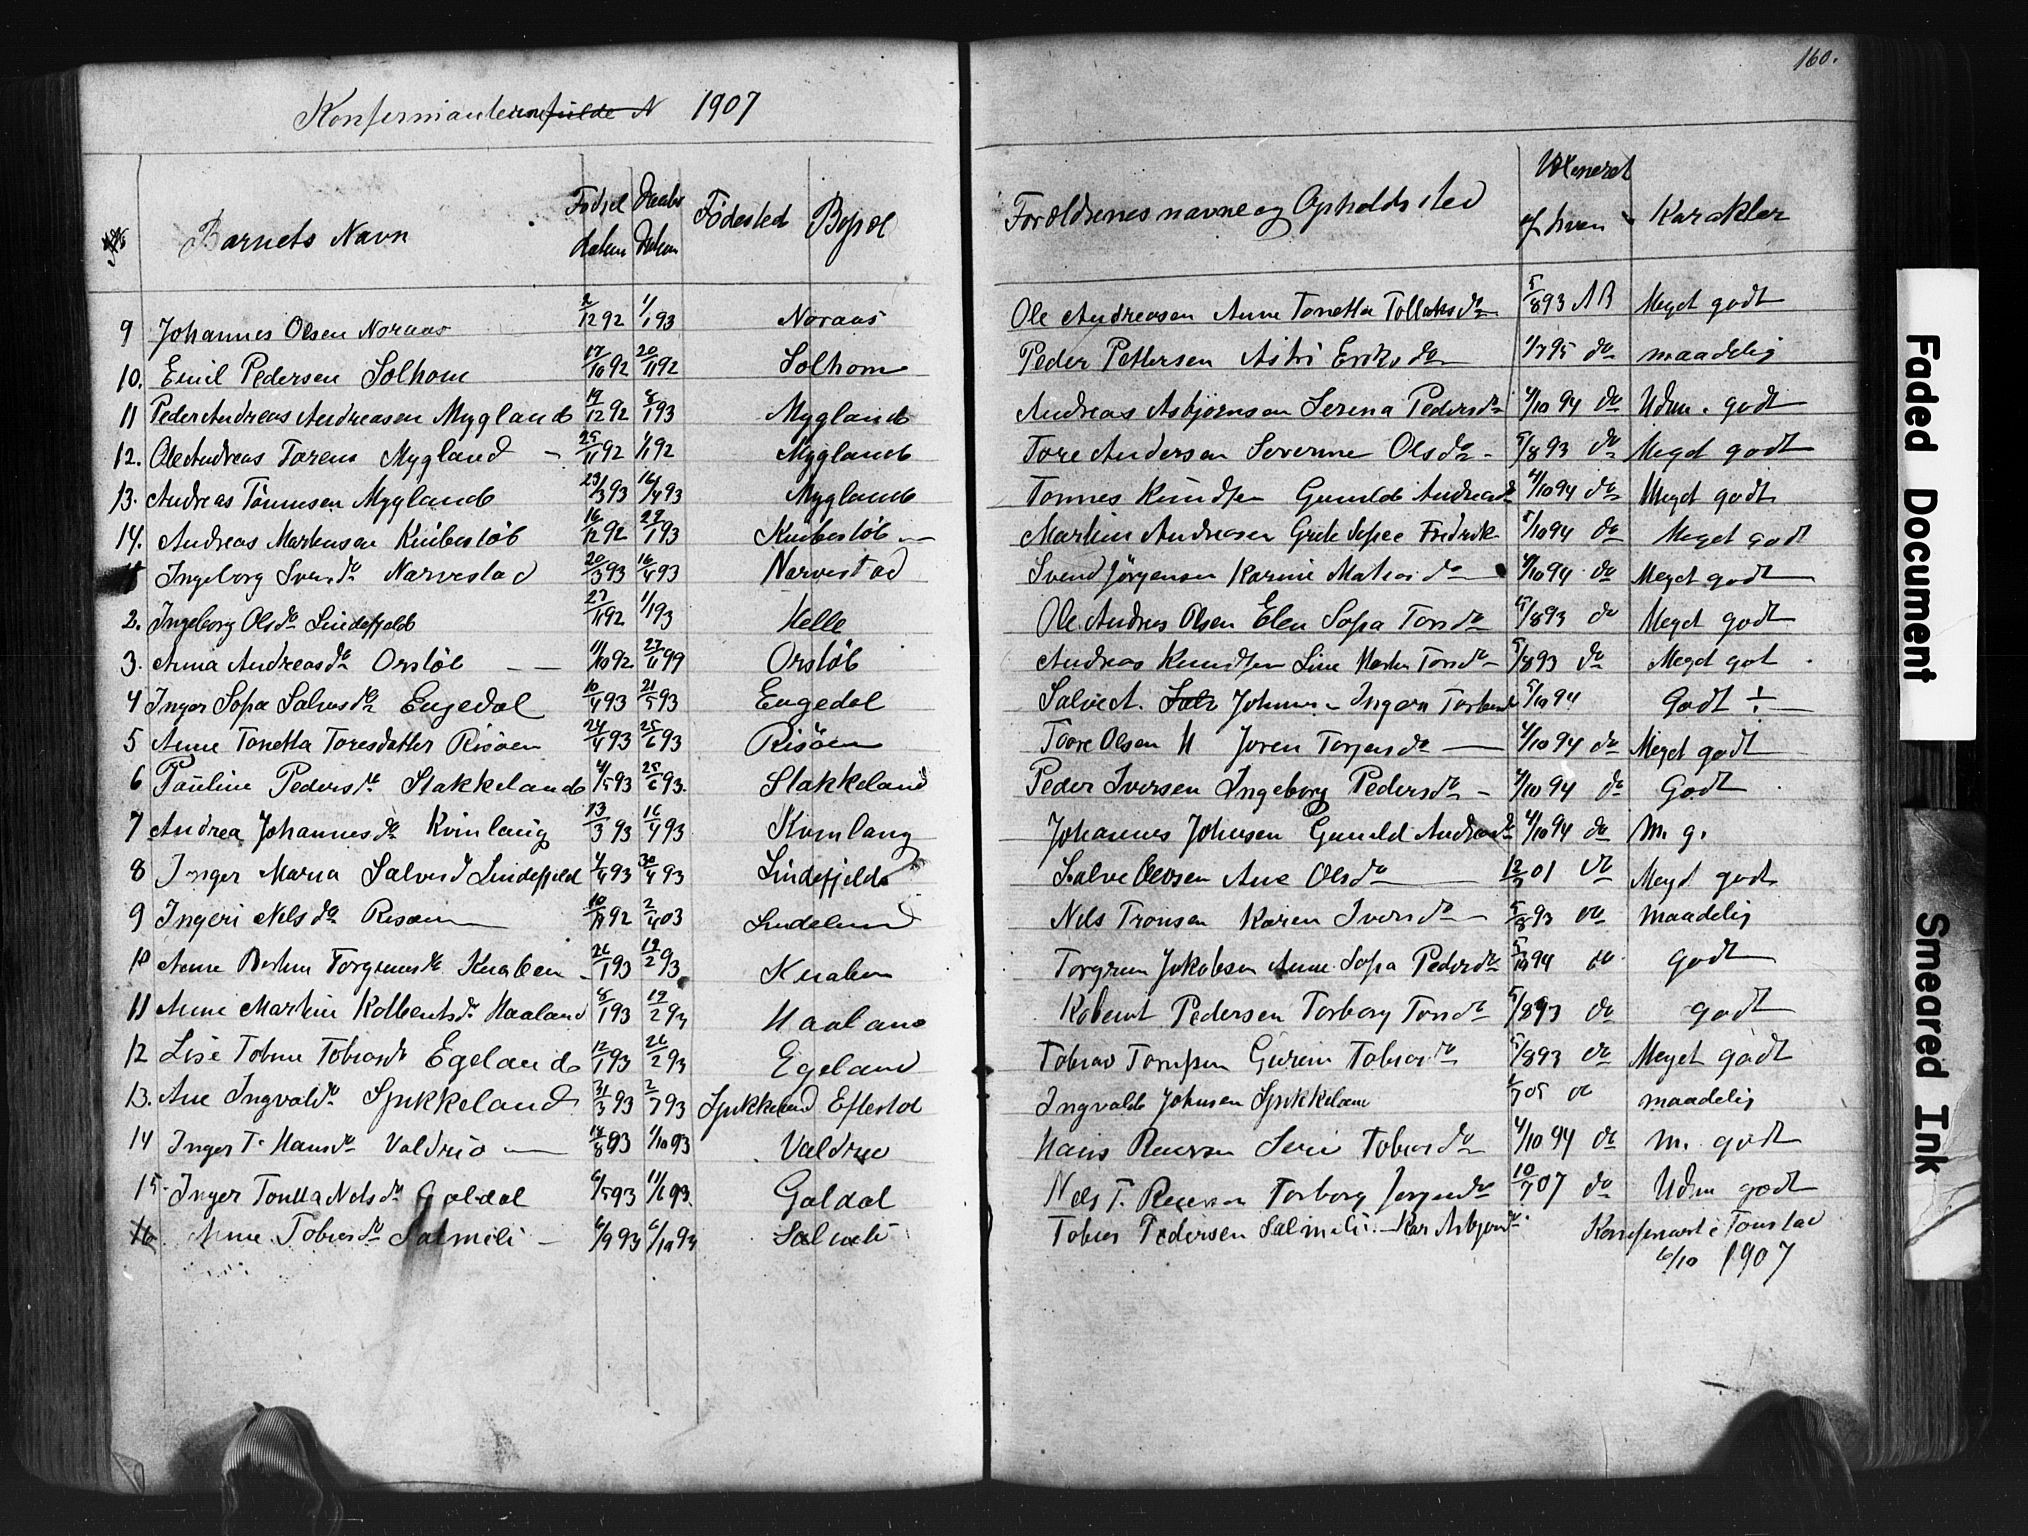 160.
1907
No Barnets Navn Fødsel datum Daabs datum Fødested Bopæl Forældrenes navne og Opholdssted Vaksineret af hvem Karakter
9 Johannes Olsen Noraas 2/12 92 1/1 93 Noraas Ole Andreasen Anne Tonetta 5/8 93 Meget godt
10. Emil Pedersen Solhom 17/10 92 20/11 92 Solhom Peder Pettersen Astri Eriksda 1/7 95 do maadelig
11 Peder Andreas Andreasen Mygland 19/12 92 8/1 93 Mygland Andreas Asbjørnsen Serina Pedersda 4/10 94 do Udm. godt
12. Ole Andreas Toresen Mygland 25/11 92 Mygland Tore Andersen Severine Olsda 5/8 93 do Meget godt
13. Andreas Tønnesen Mygland 23/3 93 16/4 93 Mygland Tønnes Knudsen Gunild 4/10 94 do Meget godt
14. Andreas Martinsen 16/12 92 29/1 93 Martin Andreasen 5/10 94 do Meget godt
1 Ingeborg Svensda Narvestad 20/3 93 16/4 93 Narvestad Svend Jørgensen Karine 4/10 94 do Meget godt
2. Ingeborg Olsda Lindefjeld 27/11 92 1/1 93 Helle Ole Andreas Olsen Elen Sofa 5/8 93 do Meget godt
3. Anna Andreasda Orsløb 11/10 92 27/11 99 Orsløb Andreas Knudsen Line 5/8 93 do Meget got
4 Inger Sofa Salvesda Engedal 10/4 93 21/5 93 Engedal Salve A. 5/10 94 Godt ÷
5 Anne Tonetta Toresdatter Risøen 24/4 93 25/6 93 Risøen Toore Olsen Joren 4/10 94 do Meget godt
6 Pauline Pedersda Stakkeland 4/5 93 25/6 93. Stakkeland Peder Iversen Ingeborg Pedersda 4/10 94 do Godt
7 Andrea Johannesda Kvinlaug 13/3 93 16/4 93 Kvinlaug Johannes Johnsen Gunild 4/10 94 do M. g.
8 Inger Maria Salvesd Lindefjeld 4/4 93 30/4 93 Lindefjeld Salve Ane Olsda 01 do Meget godt
9 Ingeri Nelsda Risøen 10/11 92 2/4 03 Lindelend Nels Tronsen Karen Iversda 5/8 93 do maadelig
10 Anne Knaben 26/1 93 19/2 93 Knaben Torgrim Jakobsen Anne Sofa Pedersda 5/10 94 do godt
11 Anne Martine Haaland 8/1 93 19/2 93 Haaland Pedersen Torborg 5/8 93 do godt
12 Lise Tobine Tobiasda Egeland 12/1 93 26/2 93 Egeland Tobias Tobiasda 5/8 93 do Meget godt
13. Ane Ingvaldsda Spikkeland 31/3 93 2/7 93 Spikkeland Eftestøl Ingvald Johnsen Spikkeland 05 do maadelig
14 Inger T. Hansda Valdrio 18/8 93 1/10 93 Hans Tobiasda 4/10 94 do M. godt
15. Inger Nelsda Galdal 6/5 93 11/6 93. Galdal Nels T. Torborg 10/7 07 do Udm godt
16. Anne Tobiasda Salmeli 6/9 93 6/10 93 Salmeli Tobias Pedersen Salmeli Konfirmert i Tonstad
6/10 1907
Faded Document
Smeared Ink